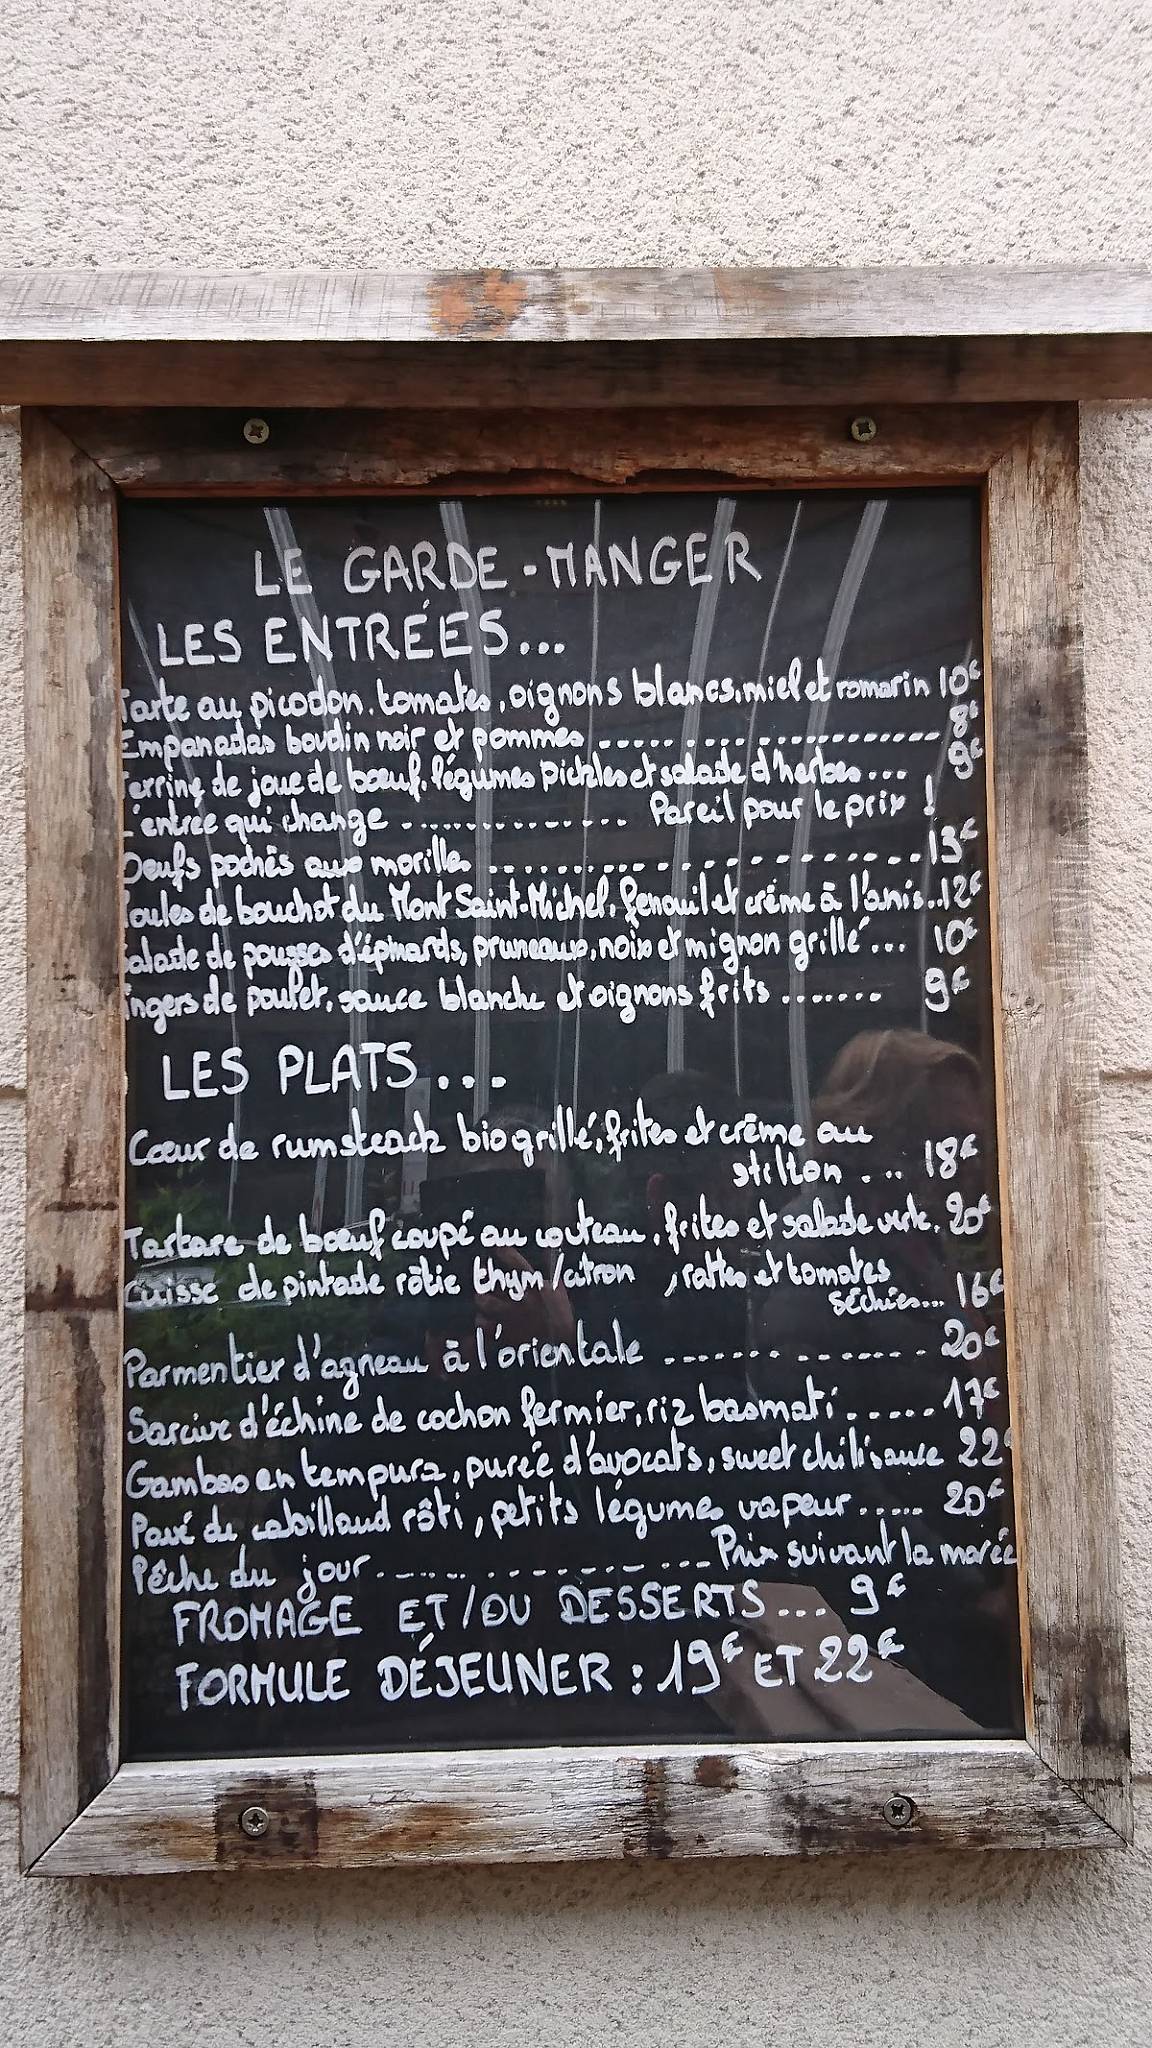 LE GARDE-MANGER
LES ENTRÉES...
Tarte au picodon, tomates, oignons blancs, miel et romarin 10€
Empanadas boudin noir et pommes ........................ 8€
Terrine de joue de bœuf, légumes pickles et salade d'herbes... 9€
L'entrée qui change ............... Pareil pour le prix !
Oeufs pochés aux morilles ........................ 13€
Moules de bouchot du Mont Saint-Michel, fenouil et crème à l'anis..12€
Salade de pousses d'épinards, pruneaux, noix et mignon grillé... 10€
Fingers de poulet, sauce blanche et oignons frits ....... 9€
LES PLATS...
Cœur de rumsteack bio grillé, frites et crème au
stilton .... 18€
Tartare de bœuf coupé au couteau, frites et salade verte. 20€
Cuisse de pintade rôtie thym/citron , rattes et tomates
séchées... 16€
Parmentier d'agneau à l'orientale ............... 20€
d'échine de cochon fermier, riz basmati ..... 17€
Gambas en tempura, purée d'avocats, sweet chili sauce 22€
Pavé de cabillaud rôti, petits légumes vapeur ..... 20€
Pêche du jour ............... Prix suivant la marée
FROMAGE ET/OU DESSERTS... 9€
FORMULE DÉJEUNER : 19€ ET 22€